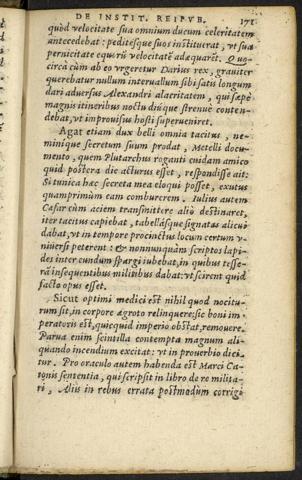 DE INSTIT. REIPVB. 171
quòd velocitate sua omnium ducum celeritatem
antecedebat: peditesque suos instituerat, vt sua
pernicitate equorũ velocitatẽ adæquarẽt. Quo-
circà cùm ab eo vrgeretur Darius rex, grauiter
querebatur nullum interuallum sibi satis longum
dari aduersus Alexandri alacritatem, qui sæpè
magnis itineribus noctu diuque strenuè conten-
debat, vt improuisus hosti superueniret.
Agat etiam dux belli omnia tacitus, ne-
minique secretum suum prodat, Metelli docu-
mento, quem Plutarchus roganti cuidam amico
quid postera die acturus esset, respondisse ait:
Si tunica hæc secreta mea eloqui posset, exutus
quamprimùm eam comburerem. Iulius autem
Cæsar cùm aciem transmittere aliò destinaret,
iter tacitus capiebat, tabellasque signatas alicui
dabat, vt in tempore procinctus locum certum v-
niuersi peterent: & nonnunquàm scriptos lapi-
des inter eundum spargi iubebat, in quibus tesse-
rã insequentibus militibus dabat: vt scirent quid
facto opus esset.
Sicut optimi medici est nihil quod nocitu-
rum sit, in corpore ægroto relinquere: sic boni im-
peratoris est, quicquid imperio obstat, remouere.
Parua enim scintilla contempta magnum ali-
quando incendium excitat: vt in prouerbio dici-
tur. Pro oraculo autem habenda est Marci Ca-
tonis sententia, qui scripsit in libro de re milita-
ri, Aliis in rebus errata postmodùm corrigi